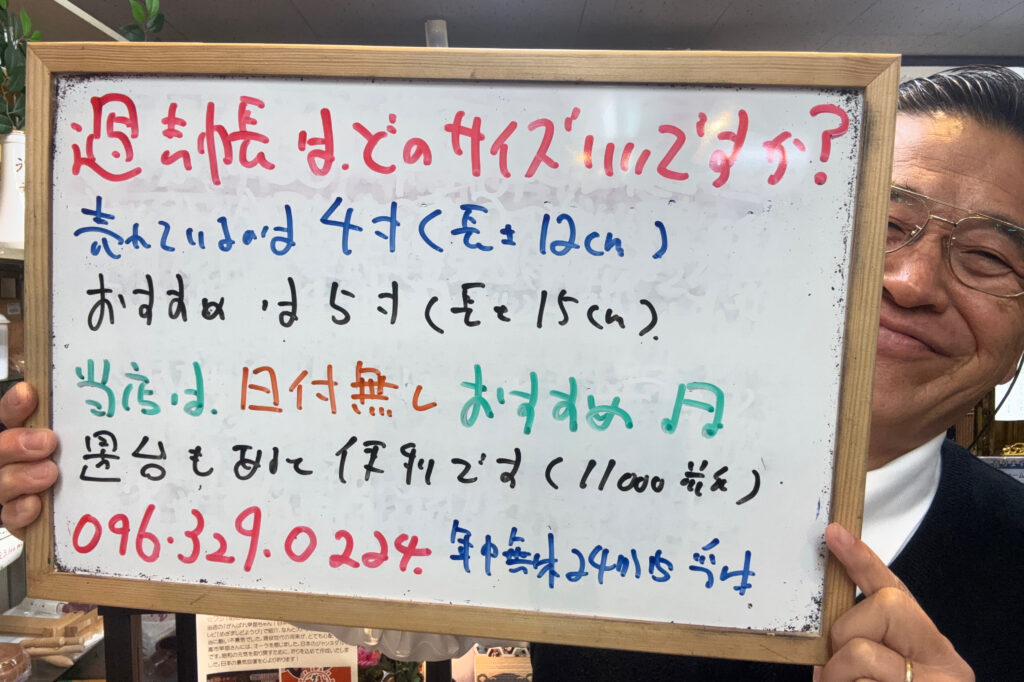 過去帳は、どのサイズいいですか?
売れているのは 4寸(長さ12cm)
おすすめは5寸(長さ15cm)
当店は、日付無し おすすめ 月
見台も あると 便利です(11000 税込)
096.329.0224. 年中無休24から